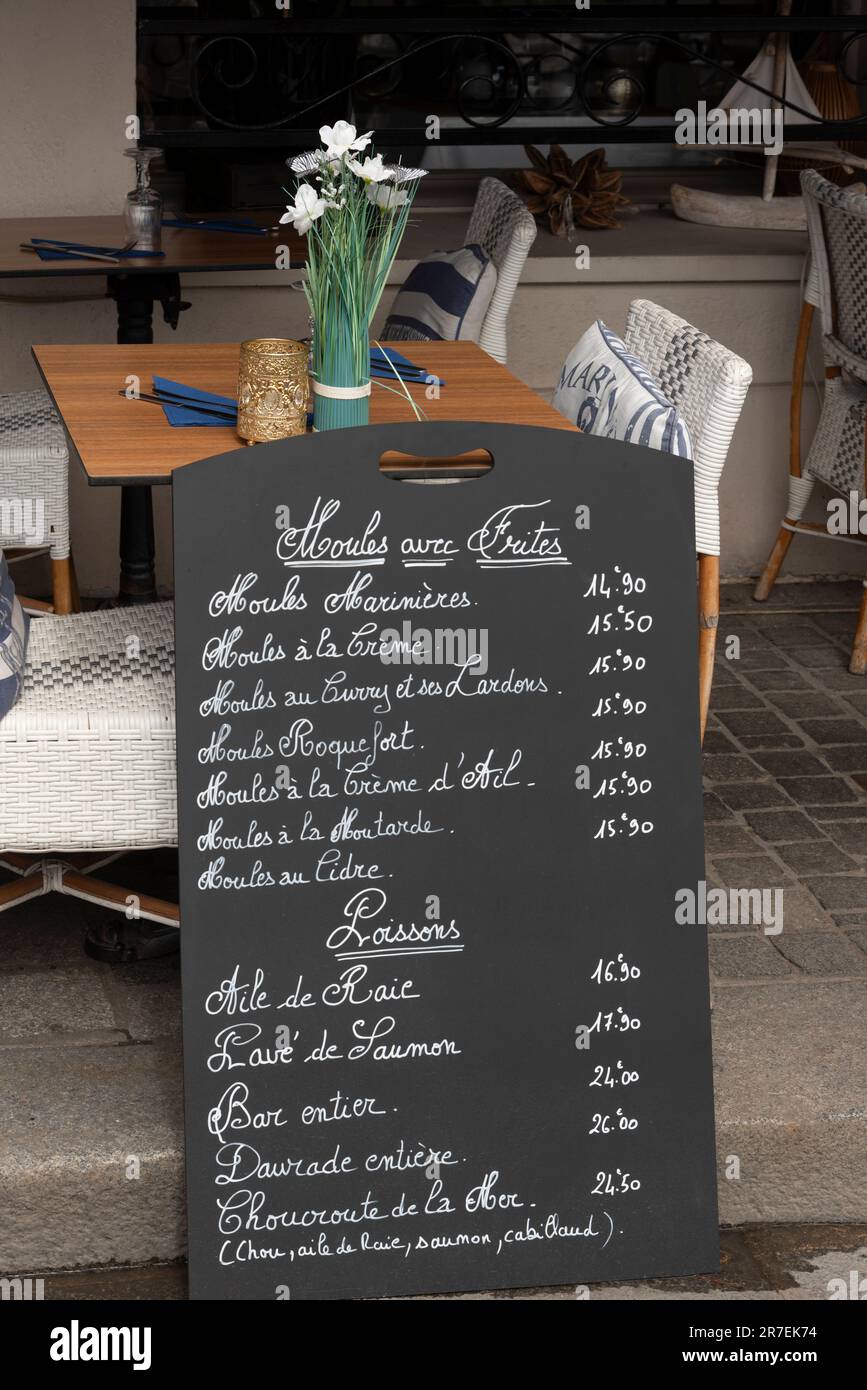 MARI
Moules avec Frites
Moules Marinières. 14€90
Moules à la Crème. 15€50
Moules au Curry et ses Lardons. 15€90
Moules Roquefort. 15€90
Moules à la Crème d'Ail - 15€90
Moules à la Moutarde. 15€90
Moules au Cidre. 15€90
Poissons
Aile de Raie 16€90
Pavé de Saumon 17€90
Bar entier. 24€00
Daurade entière. 26€00
Choucroute de la Mer. 24€50
(Chou, aile de Raie, saumon, cabillaud).
a
alamy
Image ID: 2R7EK74
www.alamy.com